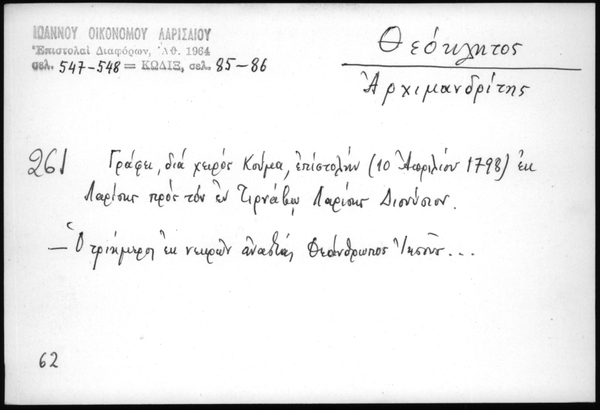 ΙΩΑΝΝΟΥ ΟΙΚΟΝΟΜΟΥ ΛΑΡΙΣΑΙΟΥ
Ἐπιστολαὶ Διαφόρων, Ἀθ. 1964
σελ. 547-548 = ΚΩΔΙΞ, σελ. 85-86
Θεόκλητος
Ἀρχιμανδρίτης
261 Γράφει, διά χειρός Κούμα, ἐπιστολήν (10 Ἀπριλίου 1798) ἐκ
Λαρίσης πρός τόν ἐν Τιρνάβῳ Λαρίσης Διονύσιον.
— Ὁ τριήμερος ἐκ νεκρῶν ἀναστάς Θεάνθρωπος Ἰησοῦς...
62